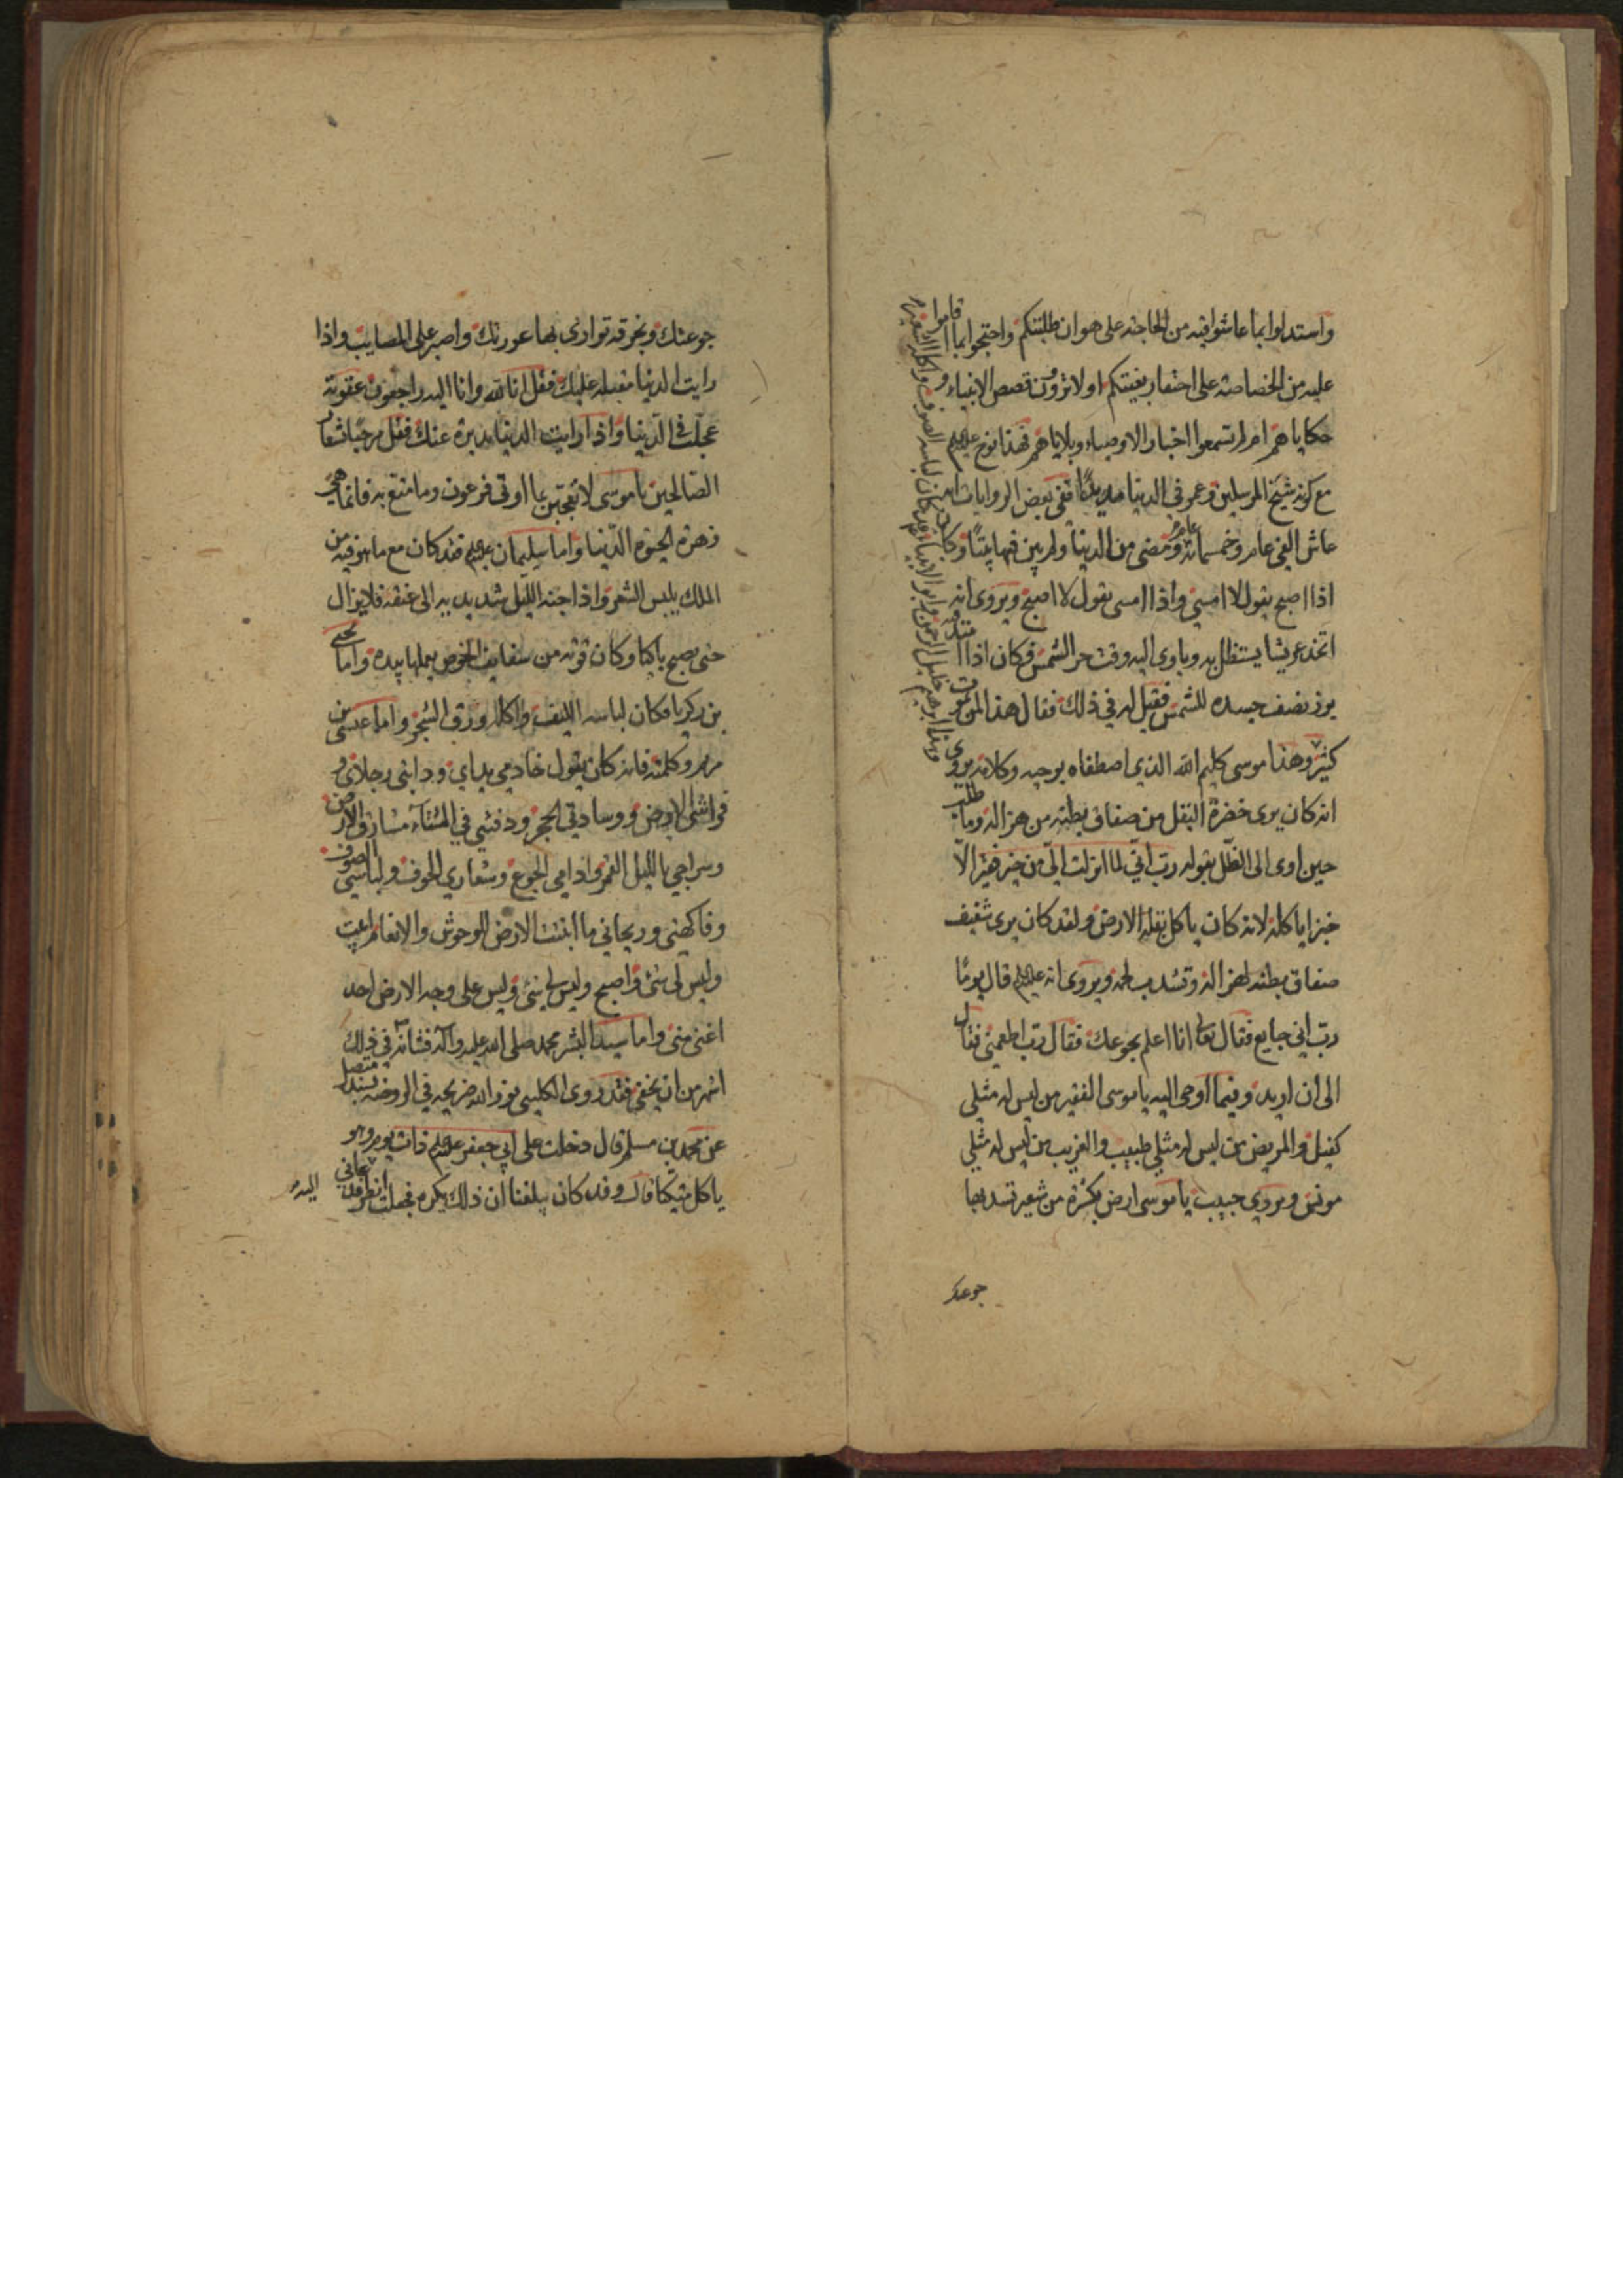 واستدلوا بما عاشوا فيه من الحاجة على هوان طلبتكم واحتجوا بما اقاموا
عليه من الخصاصة على احتقار بغيتكم اولا ترون قصص الانبياء و
حكاياهم ام لم تسمعوا اخبار الاوصياء وبلاياهم فهذا نوح علیہم
مع كونه شيخ المرسلين وعمر في الدنيا مديدًا ففي بعض الروايات انه
عاش الفي عام وخمسمائة عام ومضى من الدنيا ولم يبن فيها بيتًا وكان
اذا اصبح يقول لا امسي واذا امسى يقول لا اصبح ويروى انه
اتخذ عريشا يستظل به وياوى اليه وقت حر الشمس فكان اذا
برز نصف جسده للشمس فقيل له في ذلك فقال هذا لمن يموت
كثير وهذا موسى كليم الله الذي اصطفاه بوحيه وكلامه يروى
انه كان يرى خضرة البقل من صفاق بطنه من هزاله وما طلب
حين اوى الى الظل بقوله رب اني لما انزلت الي من خير فقير الا
خبزا ياكله لانه كان ياكل بقلة الارض ولقد كان يرى شفيف
صفاق بطنه لهزاله وتشذب لحمه ويروى انه علیہم قال يومًا
رب اني جايع فقال تعالى انا اعلم بجوعك فقال رب اطعمني فقال
الى ان اريد وفيما اوحى اليه يا موسى الفقير من ليس له مثلي
كفيل والمريض من ليس له مثلي طبيب والغريب من ليس له مثلي
مونس ويروى حبيب يا موسى ارض بكسرة من شعير تسد بها
وهذا ابرهيم خليل الرحمن وابو الانبياء قد كان لباسه الصوف واكله الشعير
جوعتك
جوعتك وبخرقة توارى بها عورتك واصبر على المصايب واذا
رايت الدنيا مقبلة عليك فقل انا لله وانا اليه راجعون عقوبة
عجلت في الدنيا واذا رايت الدنيا مدبرة عنك فقل مرحبا بشعار
الصالحين يا موسى لا تعجبن بما اوتى فرعون وما متع به فانما هي
زهرة الحيوة الدنيا واما سليمان علیہم فقد كان مع ما هو فيه من
الملك يلبس الشعر واذا جنه الليل شد يديه الى عنقه فلا يزال
حتى يصبح باكيا وكان قوته من سفايف الخوص يعملها بيده واما يحيى
بن زكريا فكان لباسه الليف واكله ورق الشجر واما عيسى بن
مريم وكلمته فانه كان يقول خادمي يداي ودابتي رجلاي و
فراشي الارض ووسادتي الحجر ودفئي في الشتاء مشارق الارض
وسراجي بالليل القمر وادامي الجوع وشعاري الخوف ولباسي الصوف
وفاكهتي وريحاني ما انبتت الارض للوحوش والانعام ابيت
وليس لي شئ واصبح وليس لي شئ وليس على وجه الارض احد
اغنى مني واما سيد البشر محمد صلى الله عليه واله فشانه في ذلك
اشهر من ان يخفى فقد روى الكليني نور الله ضريحه في الروضة بسند متصل
عن محمد بن مسلم قال دخلت على ابي جعفر علیہم ذات يوم وهو
ياكل متكئا قال وقد كان يبلغنا ان ذلك يكره فجعلت انظر فدعاني
اليه